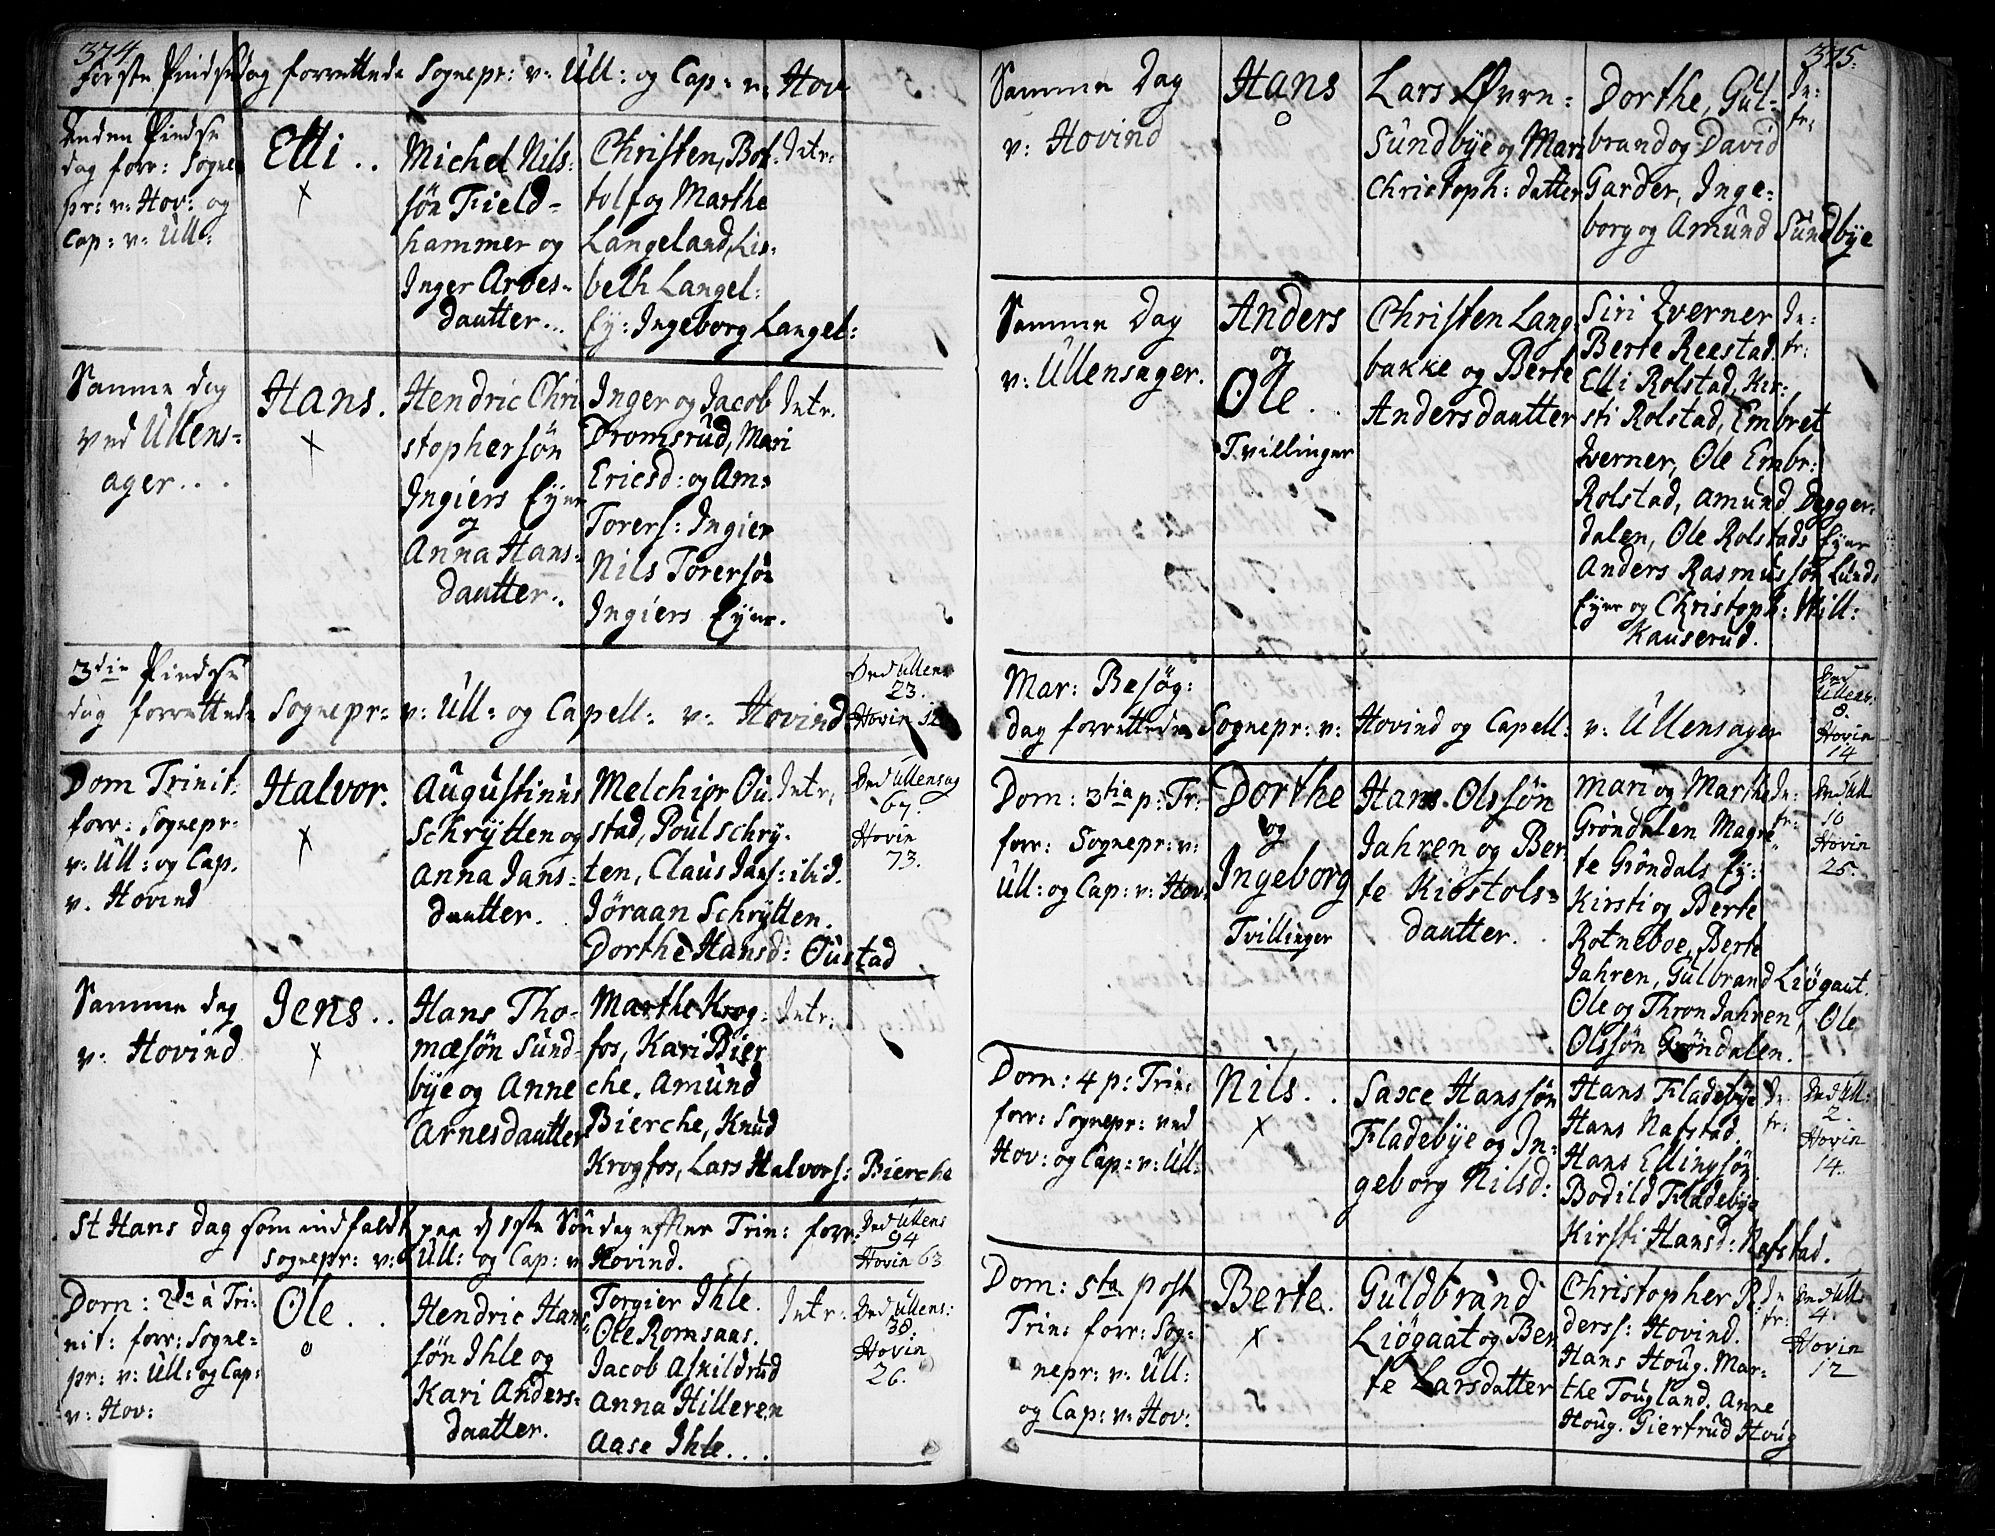 374
Første Pindsedag forrettede Sognepr: v: Ull: og Cap: v: Hov
Anden Pindse
dag forr: Sogne
pr: v: Hov: og
Cap: v: Ull:
Elli . .
Michel Nils:
søn Field=
hammer og
Inger Arves=
dautter...
Christen, Bot=
tolf og Marthe
Langeland, Lis=
beth Langel:
Ey: Ingeborg Langel:
Intr:
Samme dag
ved Ullens=
ager . . .
Hans.
Hendric Chri
stophersøn
Ingiers Eyer
og
Anna Hans=
dautter.
Inger og Jacob
Dromsrud, Mari
Ericsd: og Am=
Torers: Ingier
Nils Torersøn
Ingiers Eyer.
Intr.
3die Pindse
dag forrettede Sognepr: v: Ull: og Capell: v: Hovind:
Ved Ullens
23.
Hovin
Dom Trinit:
forr: Sognepr:
v: Ull: og Cap.
v. Hovind
Halvor.
Augustinus
Schrytten og
Anna Jans=
dautter.
Melchior Ou
stad, Poul Schry.
ten, Claus Jans: ibid.
Jøraan Schrytten.
Dorthe Hansd: Oustad
Intr.
Ved Ullensag
67.
Hovin
73.
Samme dag
v: Hovind
Jens . .
Hans Tho=
mæsøn Sund=
bye og Anne
Arnesdautter
Marthe Krog=
fos, Kari Bier
che. Amund
Bierche, Knud
Krogfos, Lars Halvors: Bierche
Intr:
St Hans dag som indfaldt paa d 1ste Søndag efter Trin: forr:
Sognepr: v: Ull: og Cap: v Hovind.
Ved Ullens
94
Hovin 63
Dom: 2da à Tri:
nit: forr: Sogne=
pr: v: Ull: og Cap:
v: Hov:
Ole . .
Hendric Hans
søn Ihle og
Kari Anders=
dautter.
Torgier Ihle.
Ole Romsaas.
Jacob Askildrud
Anna Hilleren
Aase Ihle . . .
Intr:
Ved Ullens:
38.
Hovin
26.
375.
Samme Dag
v: Hovind
Hans
Lars Øvre=
Sundbye og Mari
Christoph: datter
Dorthe, Gul=
brand og David
Garder, Inge=
borg og Amund Sundbye
In:
tr:
Samme Dag
v: Ullensager.
Anders
og
Ole . .
Tvillinger
Christen Lang
bakke og Berte
Andersdautter
Siri Iverner
Berte Reestad.
Elli Rolstad, Kir:
sti Rolstad, Embret
Iverner, Ole Embr:
Rolstad, Amund Degger=
dalen, Ole Rolstads Eyer
Anders Rasmussøn Lunds
Eyer og Christoph: Will:
Kauserud.
In:
tr:
Mar: Besøg:
dag forrettede Sognepr: v: Hovind og Capell: v: Ullensager
Ved
Ullens:
8.
Hovin
14
Dom: 3tia p: Tr:
forr: Sognepr: v:
Ull: og Cap: v: Hov:
Dorthe
og
Ingeborg
Tvillinger
Hans Olssøn
Jahren og Ber
te Kiostols=
dautter.
Mari og Marthe
Grøndalen Magre
te Grøndals Ey:
Kirsti og Berte
Rotneboe, Berte
Jahren, Gulbrand Liøgaut.
Ole og Thron Jahren, Ole
Olssøn Grøndalen.
In:
tr:
Ved Ull
10
Hovin
25.
Dom: 4 p: Trin:
forr: Sognepr: ved
Hov: og Cap: v: Ull:
Nils. .
Saxe Hanssøn
Fladebye og In=
geborg Nilsd:
Hans Fladebye
Hans Nafstad.
Hans Ellingsøn
Bodild Fladebye
Kirsti Hansd: Nafstad.
In:
tr:
Ved Ull:
2.
Hovin
14.
Dom: 5ta post
Trin: forr: Sog=
nepr: v: Ull:
og Cap: v: Hov:
Berte.
Guldbrand
Liøgaat og Ber
te Larsdatter
Christopher R:
derss: Hovind.
Hans Houg. Mar=
the Tougland. Anne
Houg. Giertrud Houg
In
tr:
Ved Ull:
4.
Hovin
12